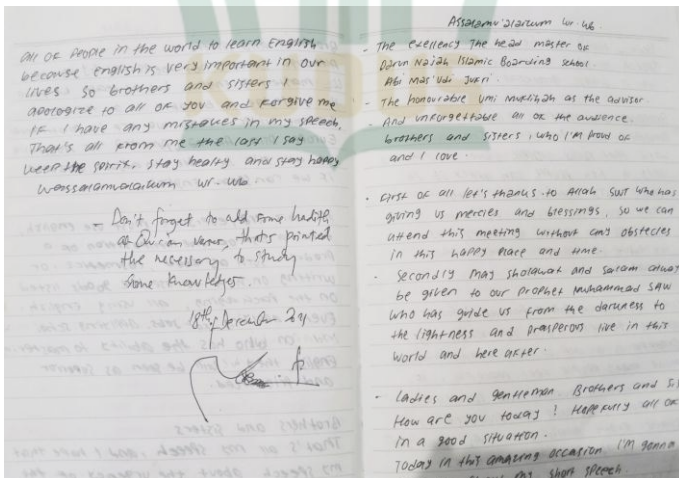 all of people in the world to learn English
because english is very important in our
lives. so brothers and sisters I
apologize to all of you and forgive me
if I have any mistakes in my speech.
That's all from me the last I say
keep the spirit, stay healty and stay happy
wassalamualaikum wr. wb
Don't forget to add some hadith
or Qur'an verse, that's printed
the necessary to study
some knowledges.
18th December 24
Assalamu'alaikum wr. wb.
- The exellency The head master of
Darun Najah Islamic Boarding school.
Abi Mas'udi Jufri.
- The honourable Umi Muklihah as the advisor.
- And unforgettable all of the audience.
brothers and sisters, who I'm proud of
and I love.
- First of all let's thanks to Allah SWT who has
giving us mercies and blessings, so we can
attend this meeting without any obstecles
in this happy place and time.
- Secondly may sholawat and salam alway
be given to our prophet Muhammad SAW
who has guide us from the darkness to
the lightness and prosperous live in this
world and here after.
- Ladies and gentleman. Brothers and Si
How are you today! Hopefully all of
in a good situation.
Today in this amazing occasion I'm gonna
my short speech.